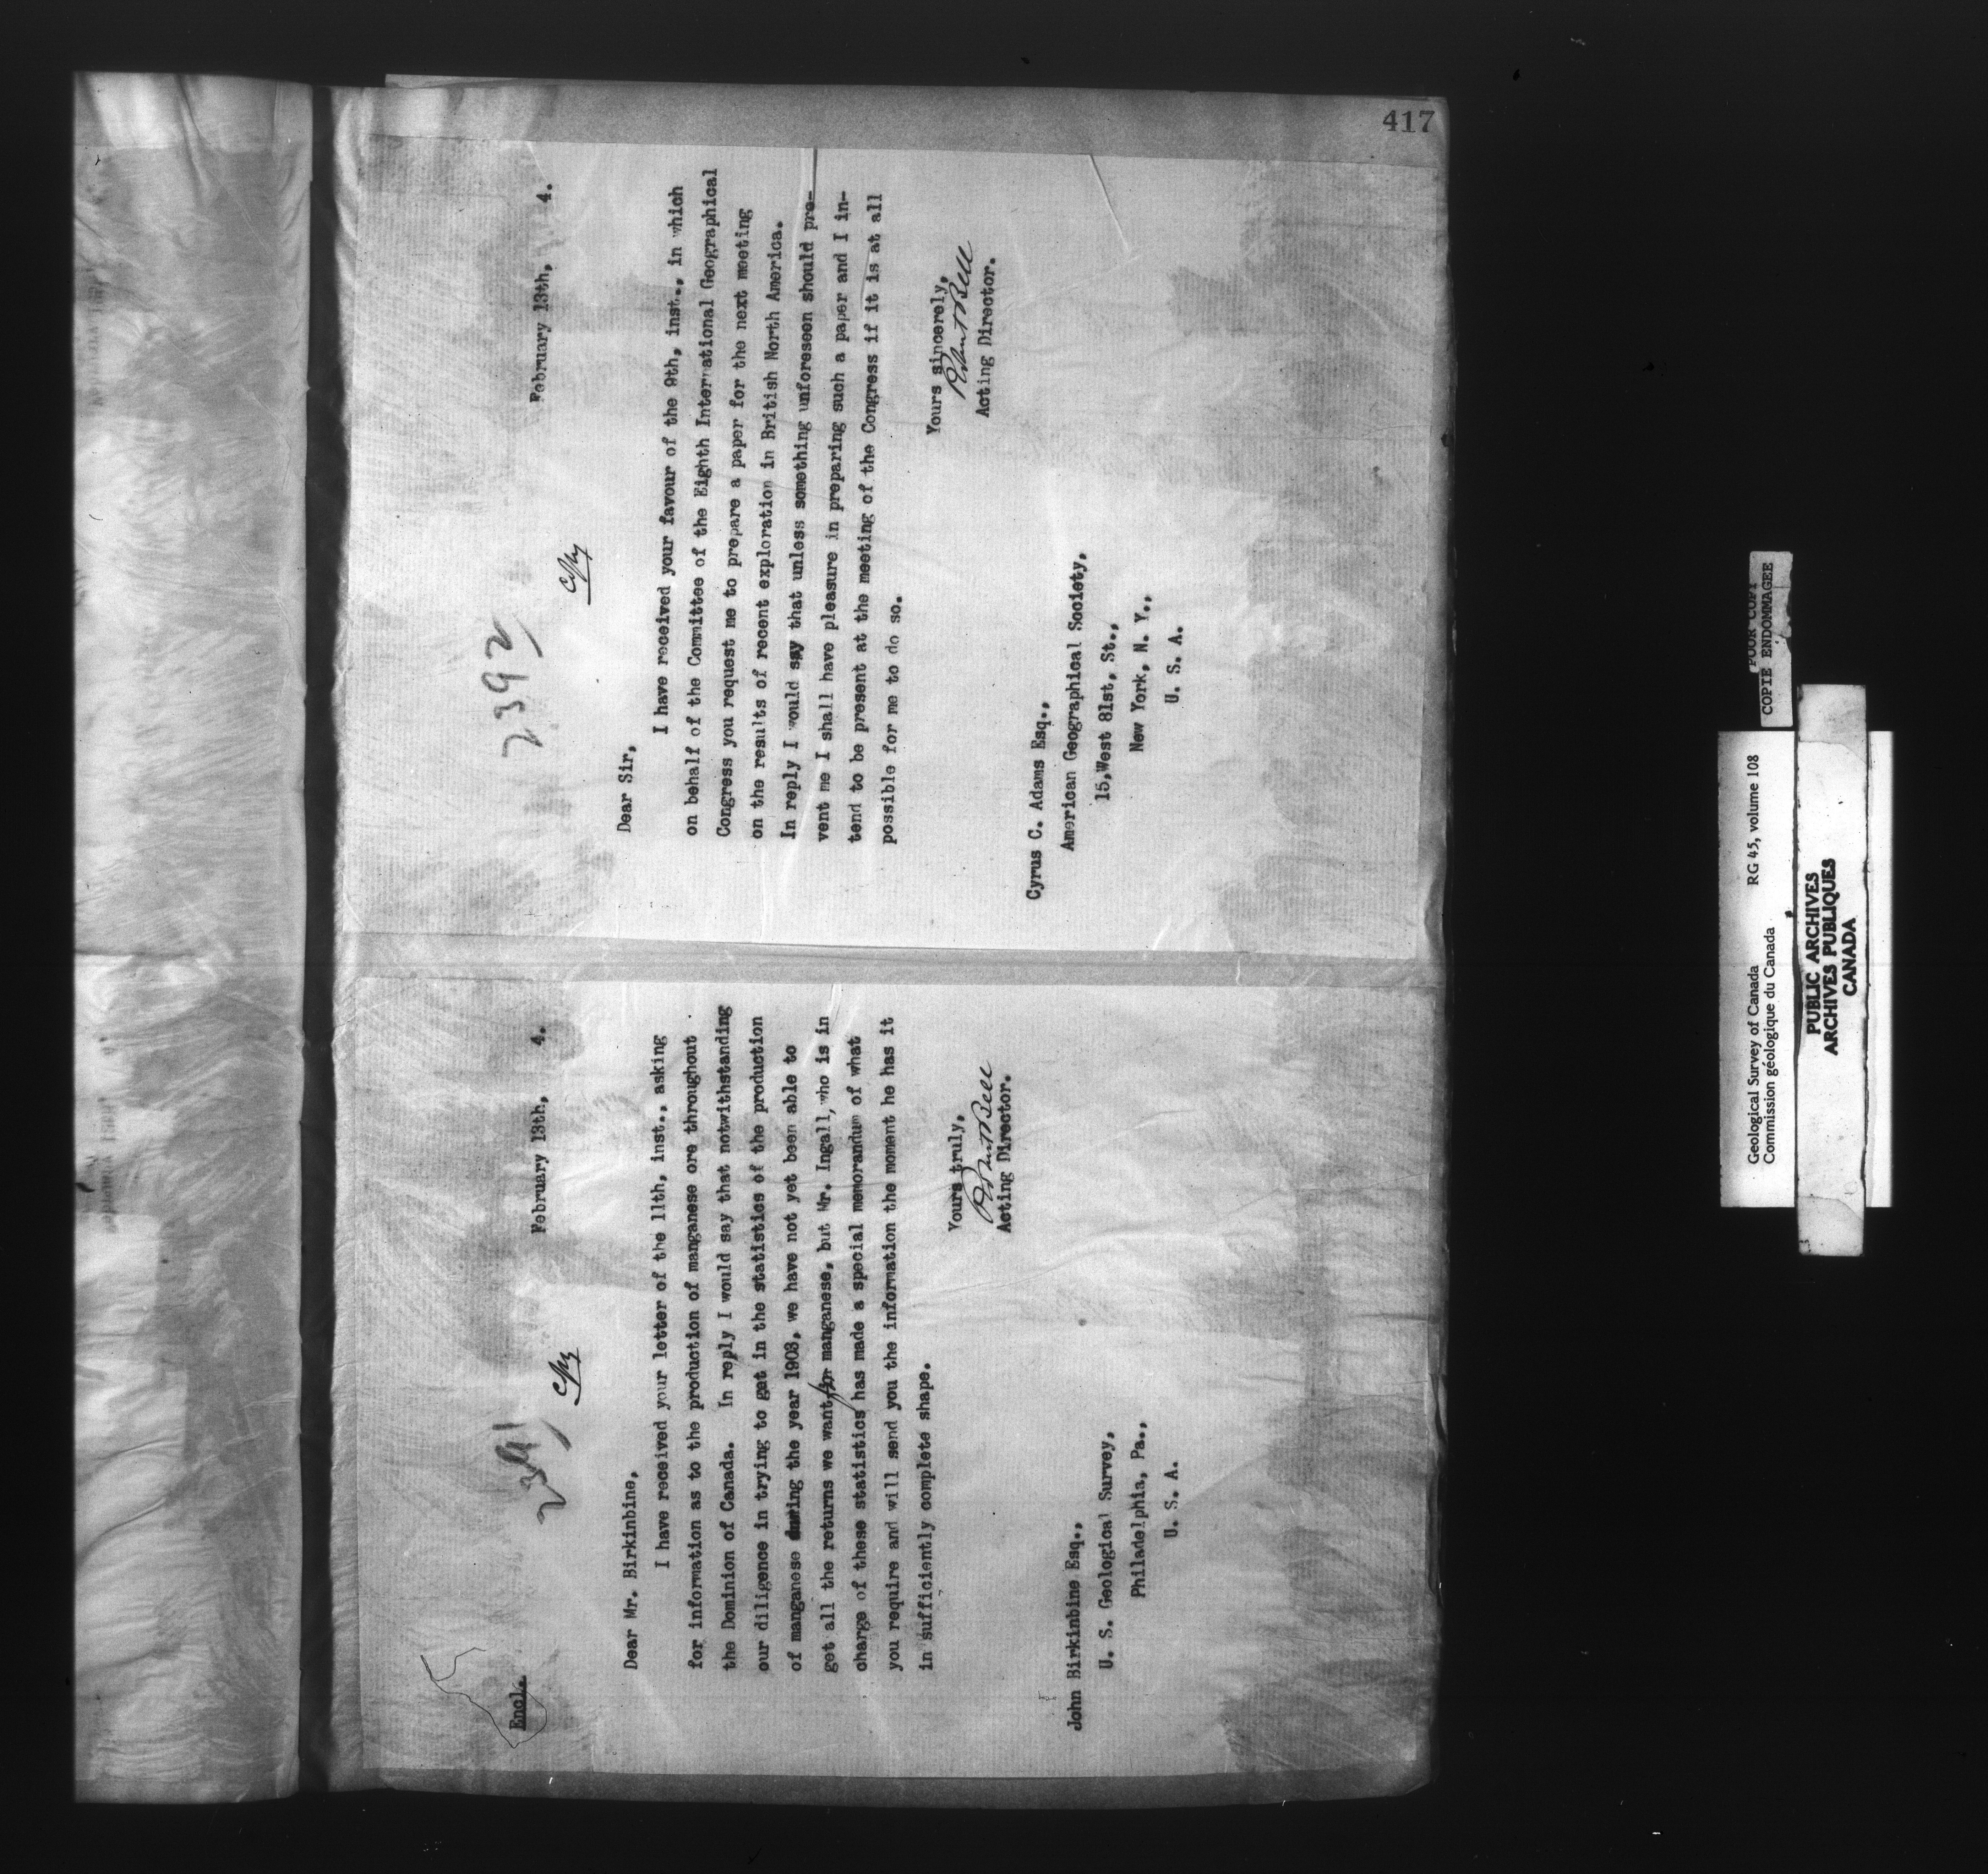 417
2391
Copy
Encl.
February 13th, 4.
Dear Mr. Birkinbine,
I have received your letter of the 11th, inst., asking
for information as to the production of manganese ore throughout
the Dominion of Canada. In reply I would say that notwithstanding
our diligence in trying to get in the statistics of the production
of manganese during the year 1903, we have not yet been able to
get all the returns we want for manganese, but Mr. Ingall, who is in
charge of these statistics has made a special memorandum of what
you require and will send you the information the moment he has it
in sufficiently complete shape.
Yours truly,
Robert Bell
Acting Director.
John Birkinbine Esq.,
U. S. Geological Survey,
Philadelphia, Pa.,
U. S. A.
2392
Copy
February 13th, 4.
Dear Sir,
I have received your favour of the 9th, inst., in which
on behalf of the Committee of the Eighth International Geographical
Congress you request me to prepare a paper for the next meeting
on the results of recent exploration in British North America.
In reply I would say that unless something unforeseen should pre-
vent me I shall have pleasure in preparing such a paper and I in-
tend to be present at the meeting of the Congress if it is at all
possible for me to do so.
Yours sincerely,
Robert Bell
Acting Director.
Cyrus C. Adams Esq.,
American Geographical Society,
15,West 81st, St.,
New York, N. Y.,
U. S. A.
Geological Survey of Canada RG 45, volume 108
Commission géologique du Canada
POOR COPY
COPIE ENDOMMAGEE
PUBLIC ARCHIVES
ARCHIVES PUBLIQUES
CANADA